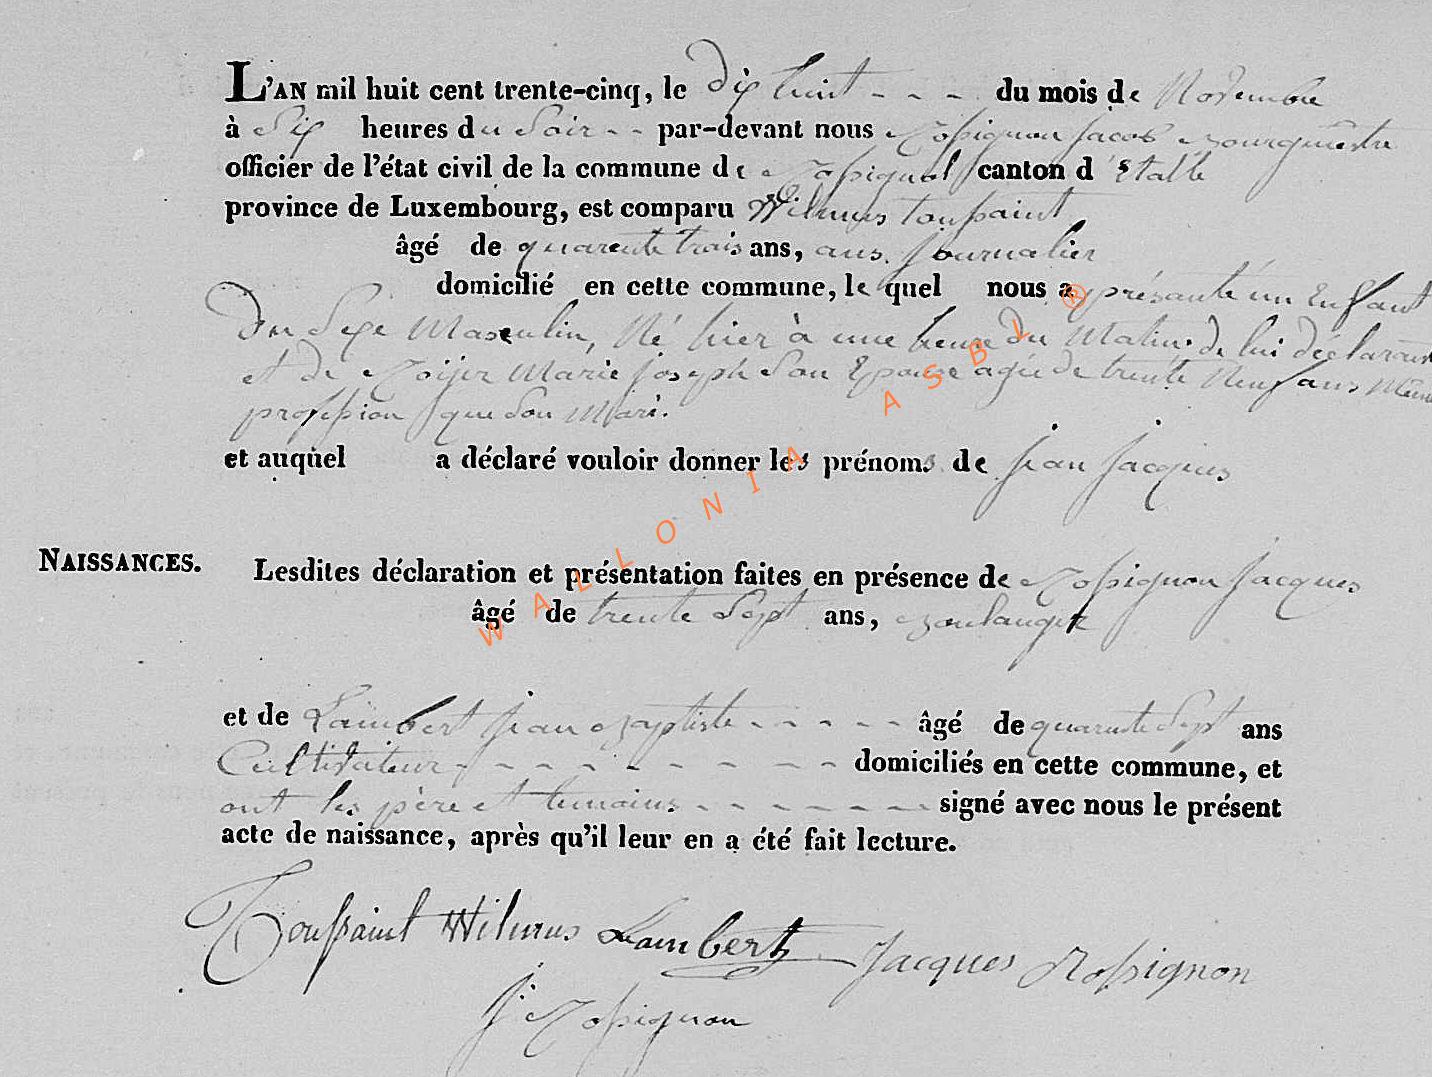 L'AN mil huit cent trente-cinq, le dix huit - - - du mois de Novembre
à Six heures du Soir - - par-devant nous Rossignon Jacob Bourguêstre
officier de l'état civil de la commune de Rossignol canton d'Etalle
province de Luxembourg, est comparu Wilmus Toussaint
âgé de quarente trois ans, ans. Journalier
domicilié en cette commune, le quel nous a présenté un Enfant
Du Sexe Masculin, Né hier à une heure du Matin. de lui déclarant
et de Marie Joseph Son Epouse agée de trente Neuf ans Même
profession que Son Mari.
et auquel a déclaré vouloir donner les prénoms de Jean Jacques
NAISSANCES.
Lesdites déclaration et présentation faites en présence de Rossignon Jacques
âgé de trente Sept ans, Boulanger
et de Lambert Jean Baptiste - - - - - âgé de quarente Sept ans
Cultivateur - - - - - - - - - domiciliés en cette commune, et
ont les père et temoins - - - - - - - signé avec nous le présent
acte de naissance, après qu'il leur en a été fait lecture.
Toussaint Wilmus Lambert Jacques Rossignon
J. Rossignon
WALLONIA ASBL ®